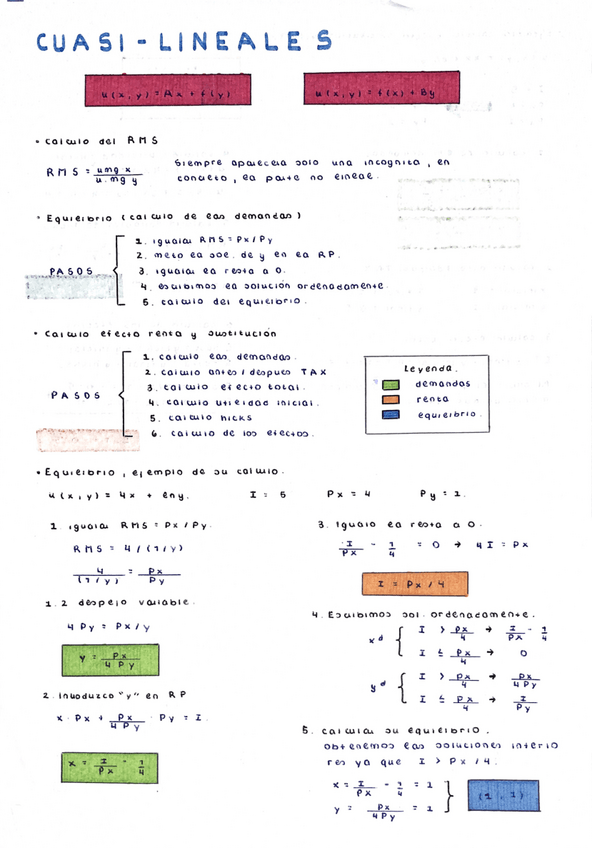 CUASI-LINEALES
u(x,y)=Ax + f(y)
u(x,y)=f(x)+By
• Calculo del RMS
RMS = umg x / u.mg y
Siempre aparecera solo una incognita, en
concreto, la parte no lineal.
• Equilibrio (calculo de las demandas)
PASOS
1. igualar RMS = Px/Py
2. meto la sol. de y en la RP.
3. igualar la resta a 0.
4. escibimos la solución ordenadamente
5. calculo del equilibrio.
• Calculo efecto renta y sustitución
PASOS
1. calculo las demandas.
2. calculo antes/despues TAX
3. calculo efecto total.
4. calculo utilidad inicial.
5. calculo hicks
6. calculo de los efectos.
Leyenda.
demandas
renta
equilibrio
• Equilibrio, ejemplo de su calculo.
u(x,y) = 4x + lny. I = 5 Px = 4 Py = 1.
1. igualar RMS = Px/Py.
RMS = 4/(1/y)
4/(1/y) = Px/Py
1.2 despejo variable.
4Py = Px/y
y = Px/4Py
2. Introduzco "y" en RP
x · Px + Px/4Py · Py = I.
x = I/Px - 1/4
3. Igualo la resta a 0.
I/Px - 1/4 = 0 → 4I = Px
I = Px/4
4. Escibimos sol. ordenadamente.
xᵈ { I > Px/4 → I/Px - 1/4
I ≤ Px/4 → 0
yᵈ { I > Px/4 → Px/4Py
I ≤ Px/4 → I/Py
5. calcular su equilibrio.
obtenemos las soluciones interio
res ya que I > Px/4.
x = I/Px - 1/4 = 1
y = Px/4Py = 1
(1,1)